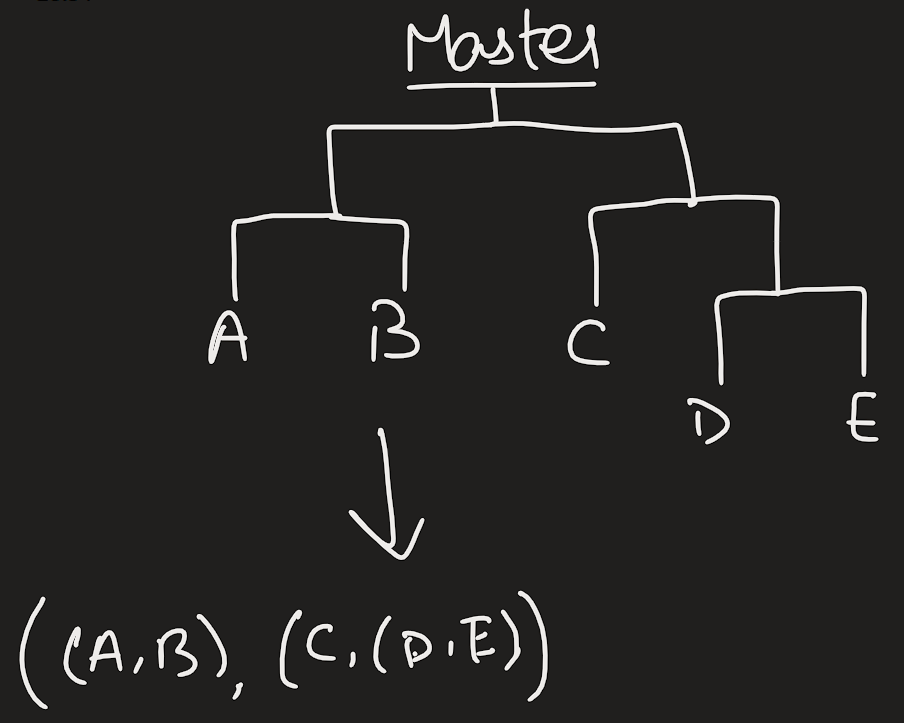 Master
A B C
D E
((A,B), (C,(D,E)))